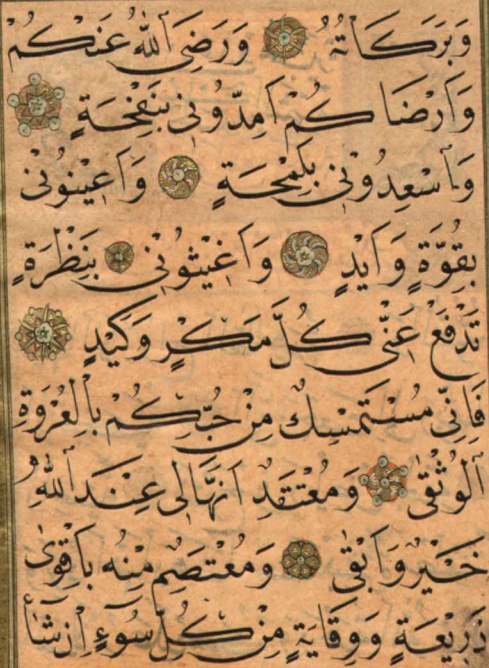 وَبَرَكَاتُهُ وَرَضِيَ اللهُ عَنْكُمْ
وَاَرْضَاكُمْ اَمِدُّونِي بِنَفْحَةٍ
وَاَسْعِدُونِي بِلَمْحَةٍ وَاَعِينُونِي
بِقُوَّةٍ وَاَيْدٍ وَاَغِيثُونِي بِنَظْرَةٍ
تَدْفَعُ عَنِّي كُلَّ مَكْرٍ وَكَيْدٍ
فَاِنِّي مُسْتَمْسِكٌ مِنْ حُبِّكُمْ بِالْعُرْوَةِ
الْوُثْقٰى وَمُعْتَقِدٌ اَنَّهَا لِى عِنْدَ اللهِ
خَيْرٌ وَاَبْقٰى وَمُعْتَصِمٌ مِنْهُ بِاَقْوٰى
ذَرِيعَةٍ وَوِقَايَةٍ مِنْ كُلِّ سُوٓءٍ اِنْ شَآءَ